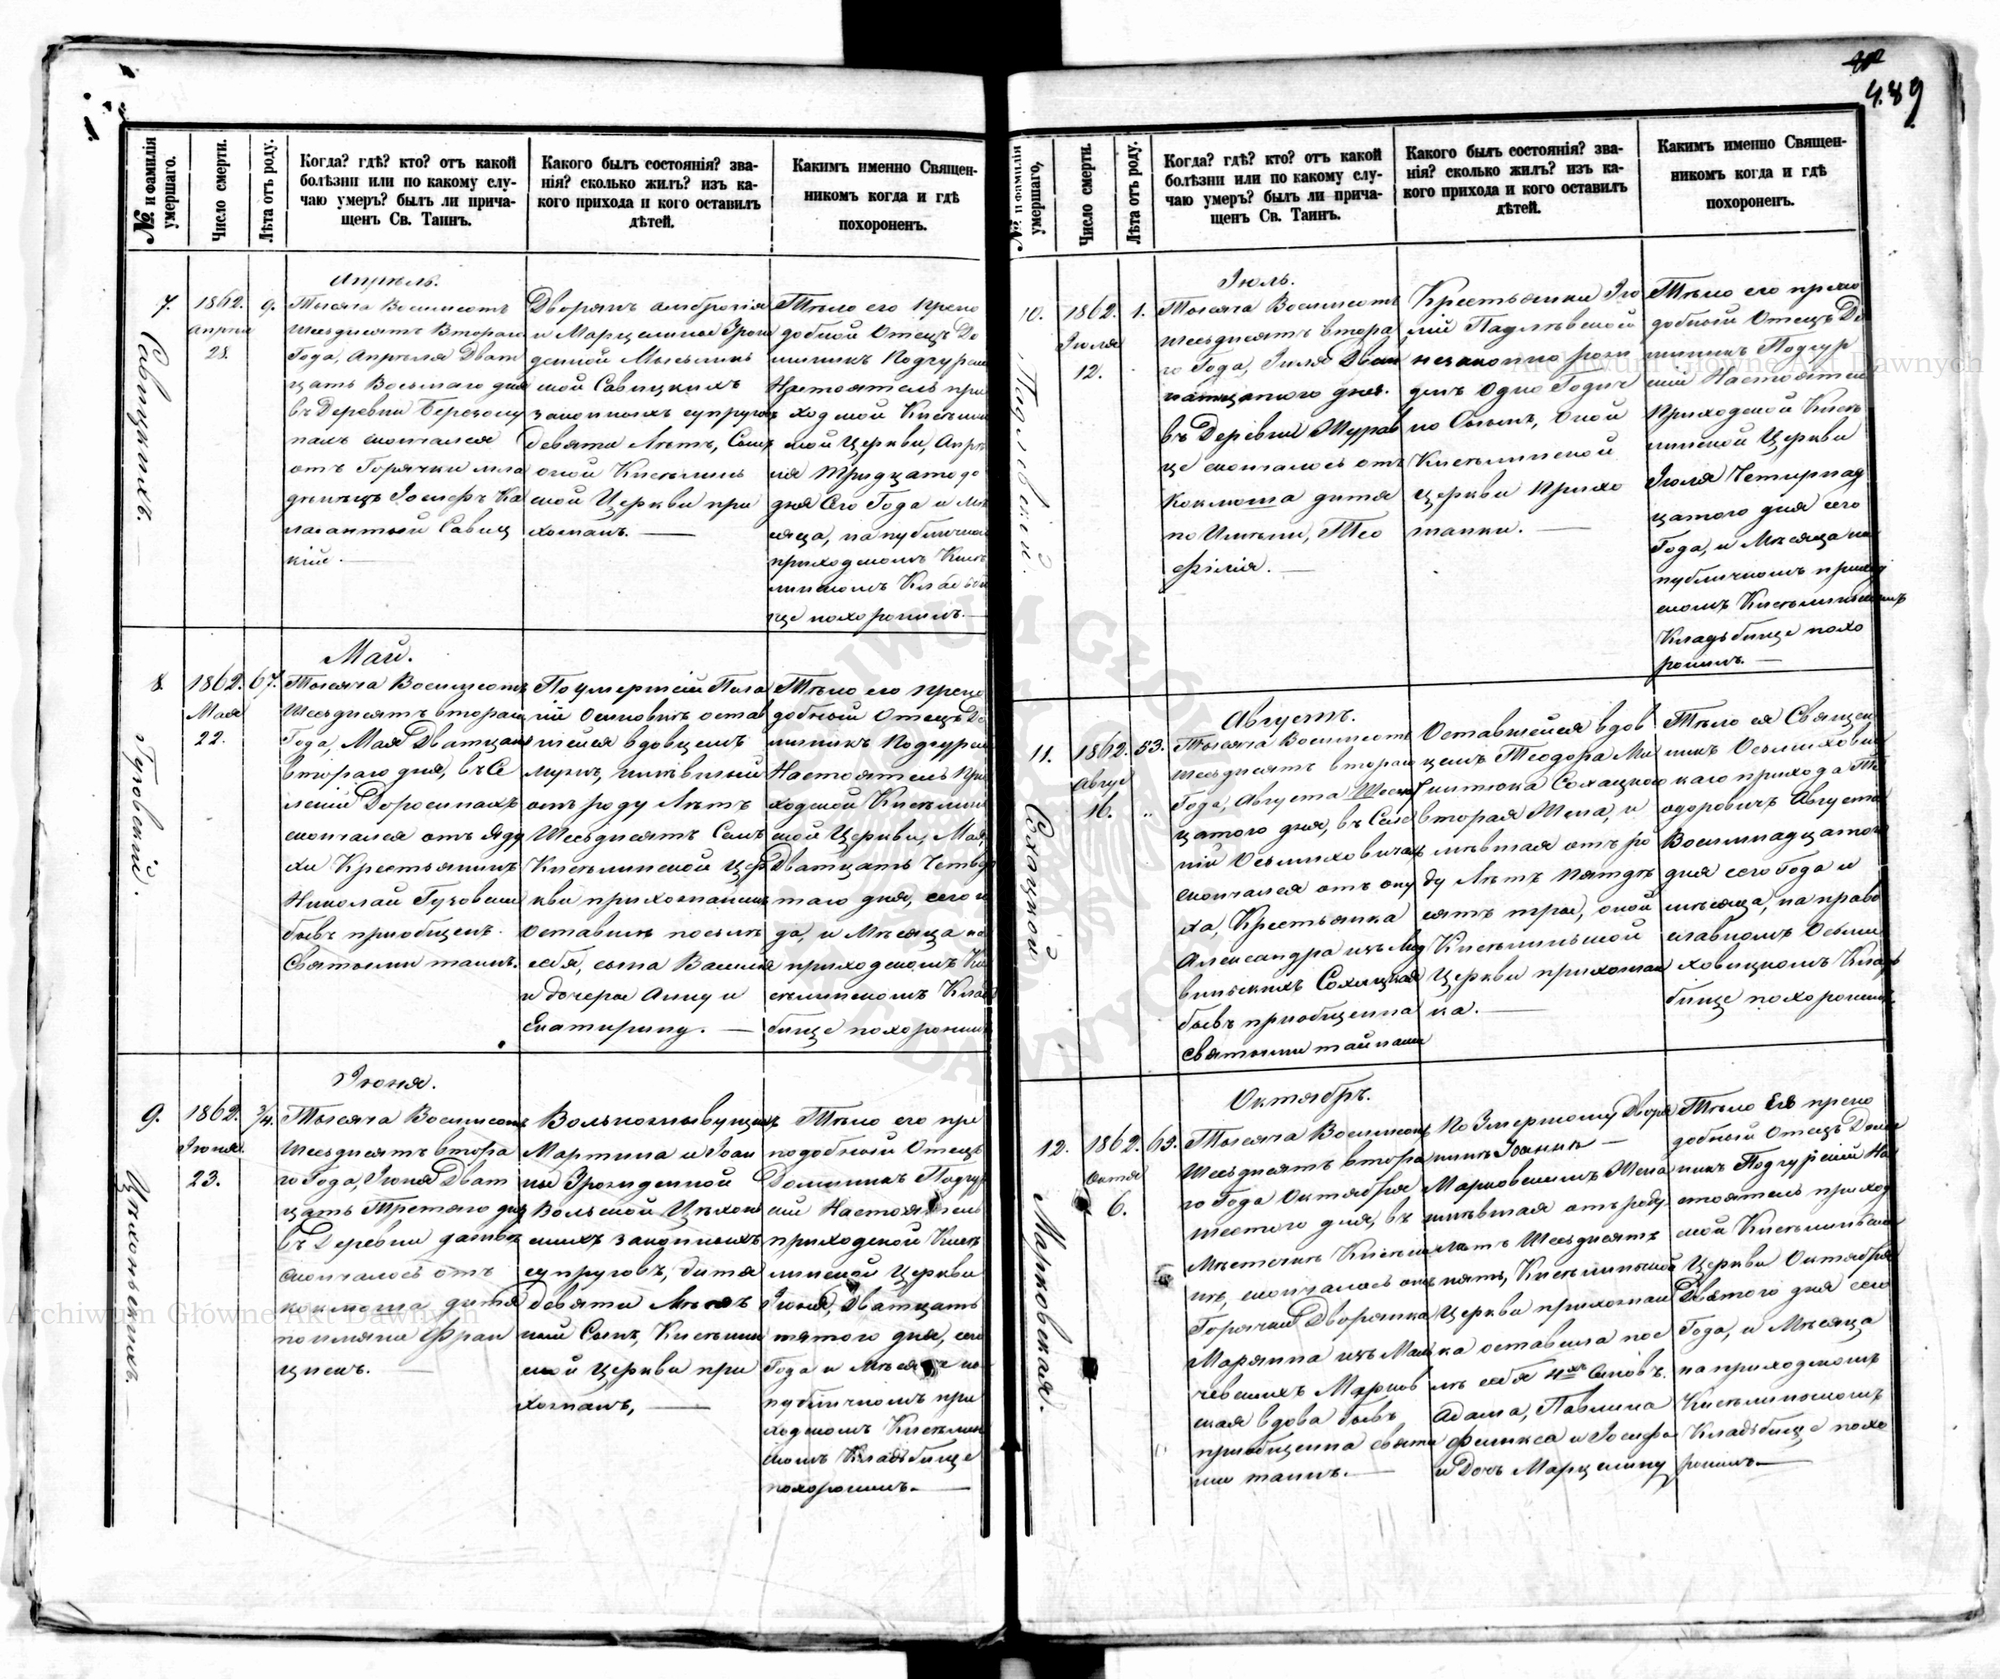 489
№. и фамилія умершаго.
Число смерти.
Лѣта отъ роду.
Когда? гдѣ? кто? отъ какой
болѣзни или по какому слу-
чаю умеръ? былъ ли прича-
щенъ Св. Таинъ.
Какого былъ состоянія? зва-
нія? сколько жилъ? изъ ка-
кого прихода и кого оставилъ
дѣтей.
Какимъ именно Священ-
никомъ когда и гдѣ
похороненъ.
7.
Савицкихъ.
1862.
Апрѣля
28.
9.
Апрѣль.
Тысяча Восимсотъ
Шесьдисятъ Втораго
Года, Апрѣля Дват
цать Восьмаго дня
въ Деревни Березолу
пахъ скончался
отъ Горячки мла
дѣнецъ Іосифъ Ка
ласантый Савиц
кій.
Дворянъ Амброгія
и Марцелины Урож
денной Мысьлин
ской Савицкихъ
законныхъ супруговъ
девяти Лѣтъ, Сынъ
оной Кисѣлинь
ской Церкви при
хожанъ.
Тѣло его Препо
добной Отецъ До
миникъ Подгурский
Настоятель при
ходской Кисѣлин
ской Церкви, Апрѣ
ля Тридцатого
дня Сего Года и мѣ
сяца, на публичном
приходскомъ Кисѣ
линскомъ Кладьби
ще похоронилъ.
8.
Гуговскій.
1862.
Мая
22.
67.
Май.
Тысяча Восимсотъ
Шесьдисятъ втораго
Года, Мая Двадцать
втораго дня, въ Се
леніи Доросиняхъ
скончался отъ Яду
хи Крестьянинъ
Николай Гуговский
бывъ приобщенъ
Святыми таинъ.
По умершей Пела
гіи Осиповнѣ остав
шейся вдовцемъ
мужъ, имѣвший
отъ роду Лѣтъ
Шесьдисятъ Семъ
Кисѣлинской Цер
кви прихожанинъ
Оставилъ послѣ
себя, сына Василія
и дочерей Анну и
Екатирину.
Тѣло его Препо
добный Отецъ До
миникъ Подгурский
Настоятель При
ходской Кисѣлин
ской Церкви, Мая,
Дватцать Четвер
таго дня, сего го
да, и Мѣсяца на
приходскомъ Ки
сѣлинскомъ Кладь
бище похоронилъ
9.
Цѣхоньскихъ.
1862.
Іюня
23.
3/4.
Іюня.
Тысяча Восимсотъ
Шесьдисятъ втора
го Года, Іюня Дват
цать Третяго дня
въ Деревни
скончалось отъ
коклюша дитя
по имяни Фран
цискъ.
Вольноживущихъ
Мартина и Іоан
ны Урожденной
Вольской Цѣхонь
скихъ законныхъ
супруговъ, дитя
девяти Мѣсяч
ный Сынъ, Кисѣлин
ской Церкви при
хожанъ,
Тѣло его пре
подобный Отецъ
Доминикъ Подгур
ский Настоятель
приходской Кисѣ
линской Церкви
Іюня, Дватцать
пятого дня, сего
Года и Мѣсяца на
публичномъ при
ходскомъ Кисѣлин
скомъ Кладьбище
похоронилъ.
№. и фамилія умершаго.
Число смерти.
Лѣта отъ роду.
Когда? гдѣ? кто? отъ какой
болѣзни или по какому слу-
чаю умеръ? былъ ли прича-
щенъ Св. Таинъ.
Какого былъ состоянія? зва-
нія? сколько жилъ? изъ ка-
кого прихода и кого оставилъ
дѣтей.
Какимъ именно Священ-
никомъ когда и гдѣ
похороненъ.
10.
Падлевский.
1862.
Іюля
12.
1.
Іюль.
Тысяча Восимсотъ
Шесьдисятъ втора
го Года, Іюля Двѣ
натцатого дня
въ Деревни Мурав
це скончалось отъ
Коклюша дитя
по Имени, Тео
філія.
Крестьянки Ю
лiй Падлѣвской
незаконно рож
денъ Одно Годич
но Сынъ, Оной
Кисѣлинской
Церкви Прихо
жанки.
Тѣло его препо
добный Отецъ До
миникъ Подгур
ский Настоятель
Приходской Кисѣ
линской Церкви
Іюля Четырнад
цатого дня сего
Года, и Мѣсяца на
публичномъ приход
скомъ Кисѣлинскомъ
Кладьбище похо
ронилъ.
11.
Сохацкой
1862.
Авгус
16.
53.
Августъ.
Тысяча Восимсотъ
Шесьдисятъ втораго
Года, Августа Шеснат
цатого дня, въ Селе
нiй Осьмиховичахъ
скончался отъ опу
ха, Крестьянка
Александра изъ
Сохацкая
бывъ приобщенна
Святыми тайнами
Оставшейся вдов
цемъ Теодора Ми
Сохацкого
вторая Жена, и
мѣвшая отъ ро
ду Лѣтъ пятдѣ
сятъ три, оной
Кисѣлиньской
Церкви прихожан
ка.
Тѣло ея Священ
никъ Осьмихович
каго прихода Те
одоровичъ Августа
Восимнадцатого
дня сего Года и
мѣсяца, на право
славномъ Осьми
ховицкомъ Кладь
бище похоронилъ.
12.
Марковская.
1862.
Октя
6.
65.
Октябрь.
Тысяча Восимсотъ
Шесьдисятъ втора
го Года Октября
шестого дня, въ
Мѣстечкѣ Кисѣли
нѣ, скончалось отъ
Горячки Дворянка
Маріянна изъ Маль
чевскихъ Марков
ская вдова бывъ
приобщенна святы
ми таинъ.
По Умершому Дворя
нинѣ Іоаннѣ
Марковскимъ Жена
имѣвшая отъ роду
Лѣтъ Шесьдисятъ
пять, Кисѣлинской
Церкви прихожан
ка оставила пос
лѣ себя 4хъ Сыновъ.
Адама, Павлина
Феликса и Іосифа
и Дочъ Марцелину
Тѣло Ея препо
добный Отецъ Доми
никъ Подгурский На
стоятель приход
ской Кисѣлиньской
Церкви Октября
Девятого дня сего
Года, и Мѣсяца
на приходскомъ
Кисѣлинскомъ
Кладьбище похо
ронилъ.
Archiwum Główne Akt Dawnych
Archiwum Główne Akt Dawnych